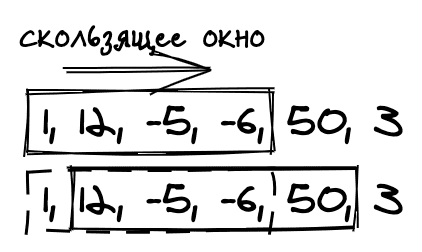 скользящее окно
1, 12, -5, -6, 50, 3
1, 12, -5, -6, 50, 3